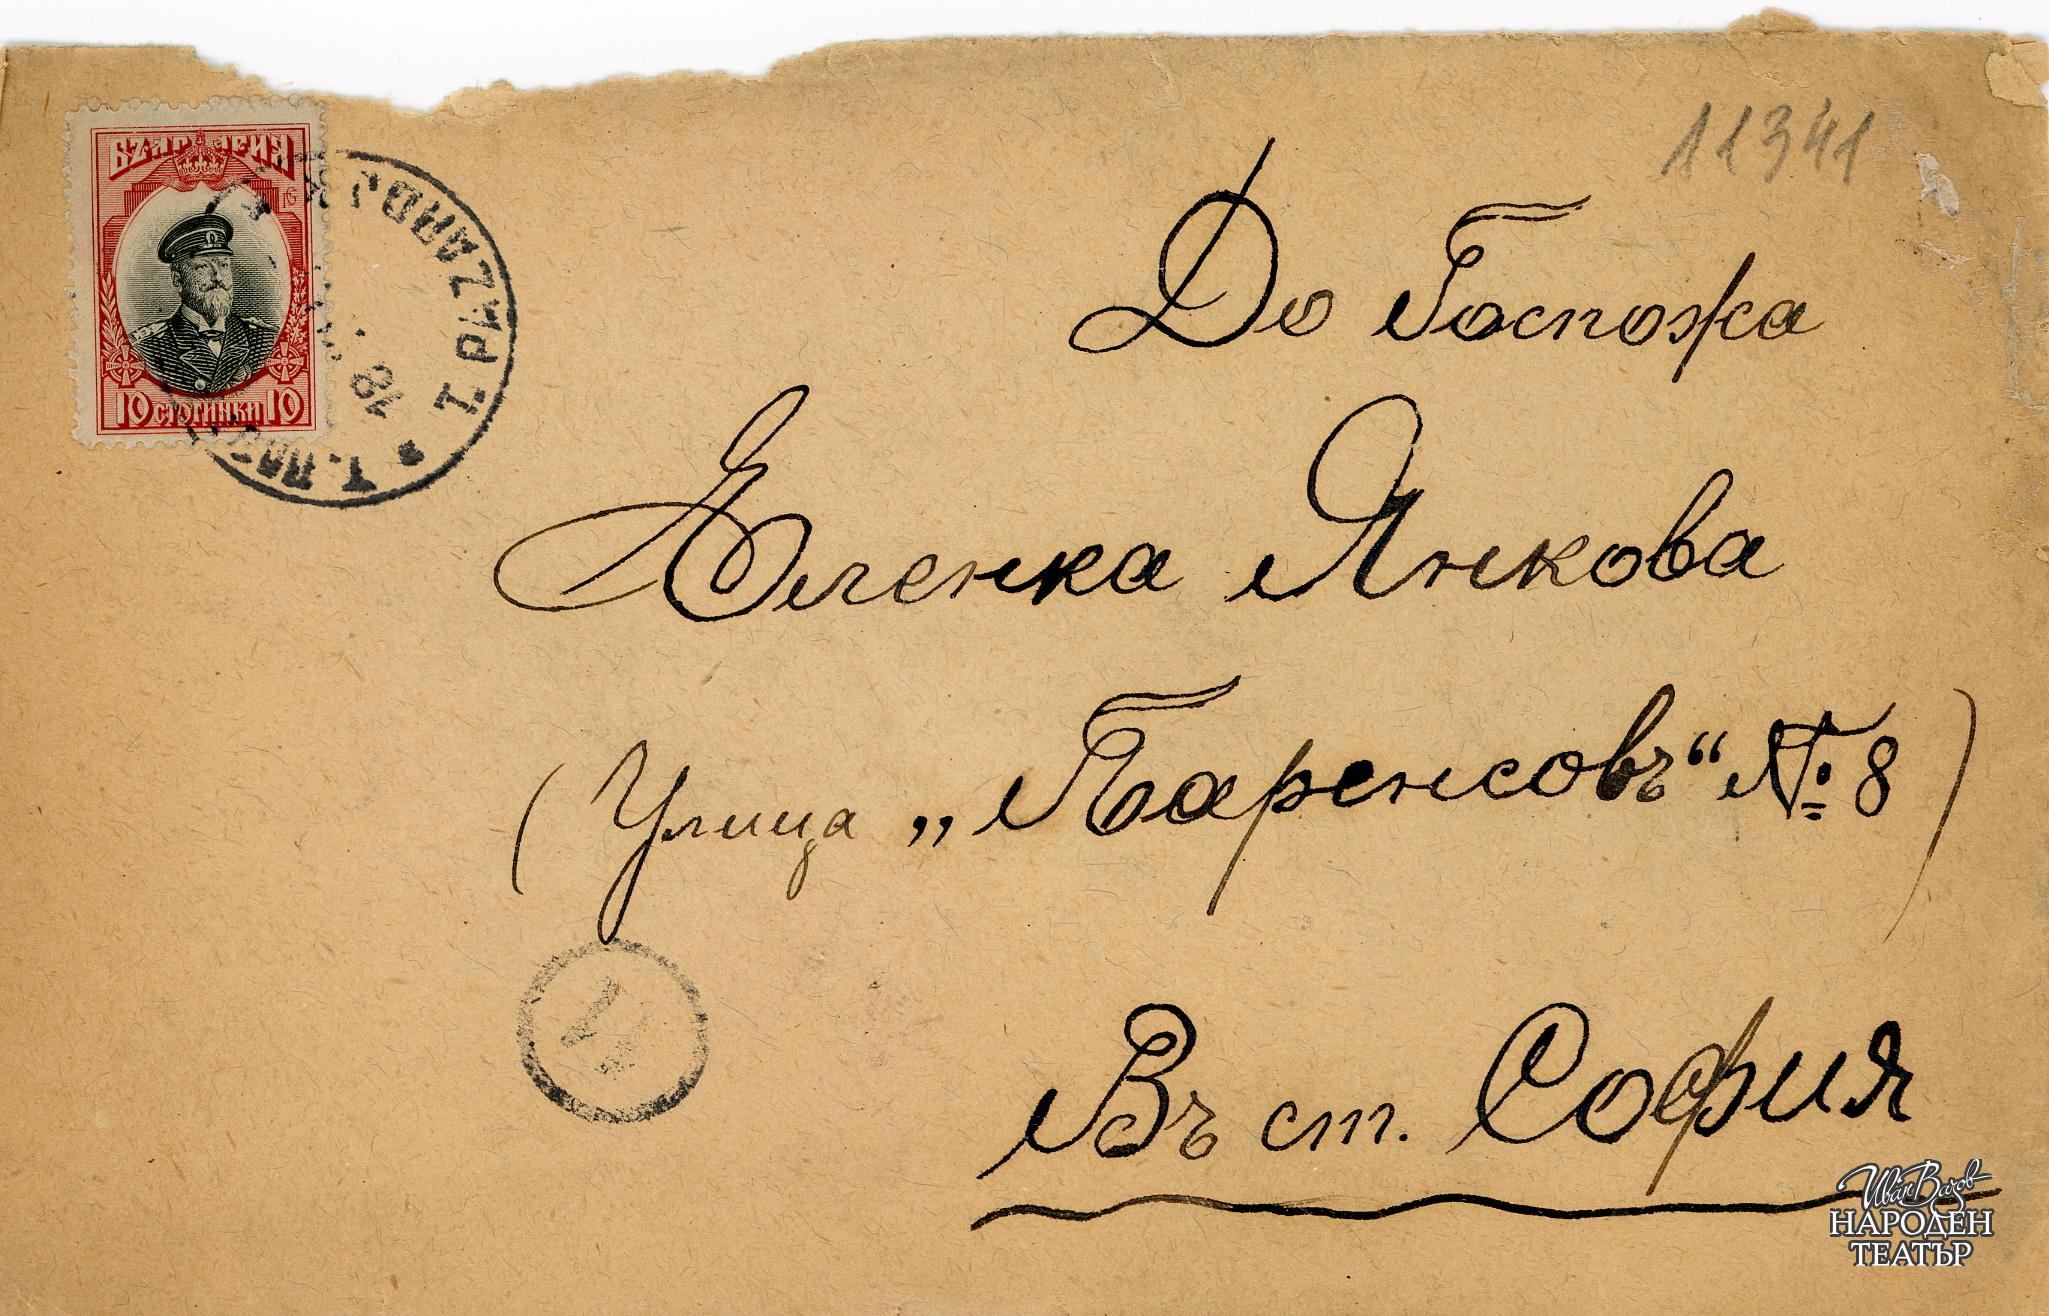 БЪЛГАРИЯ
10 СТОТИНКИ 10
Т. PAZARDJ
11341
До Госпожа
Еленка Янкова
(Улица „Паренсовъ“ № 8)
Въ ст. София
Иван Вазов
НАРОДЕН
ТЕАТЪР